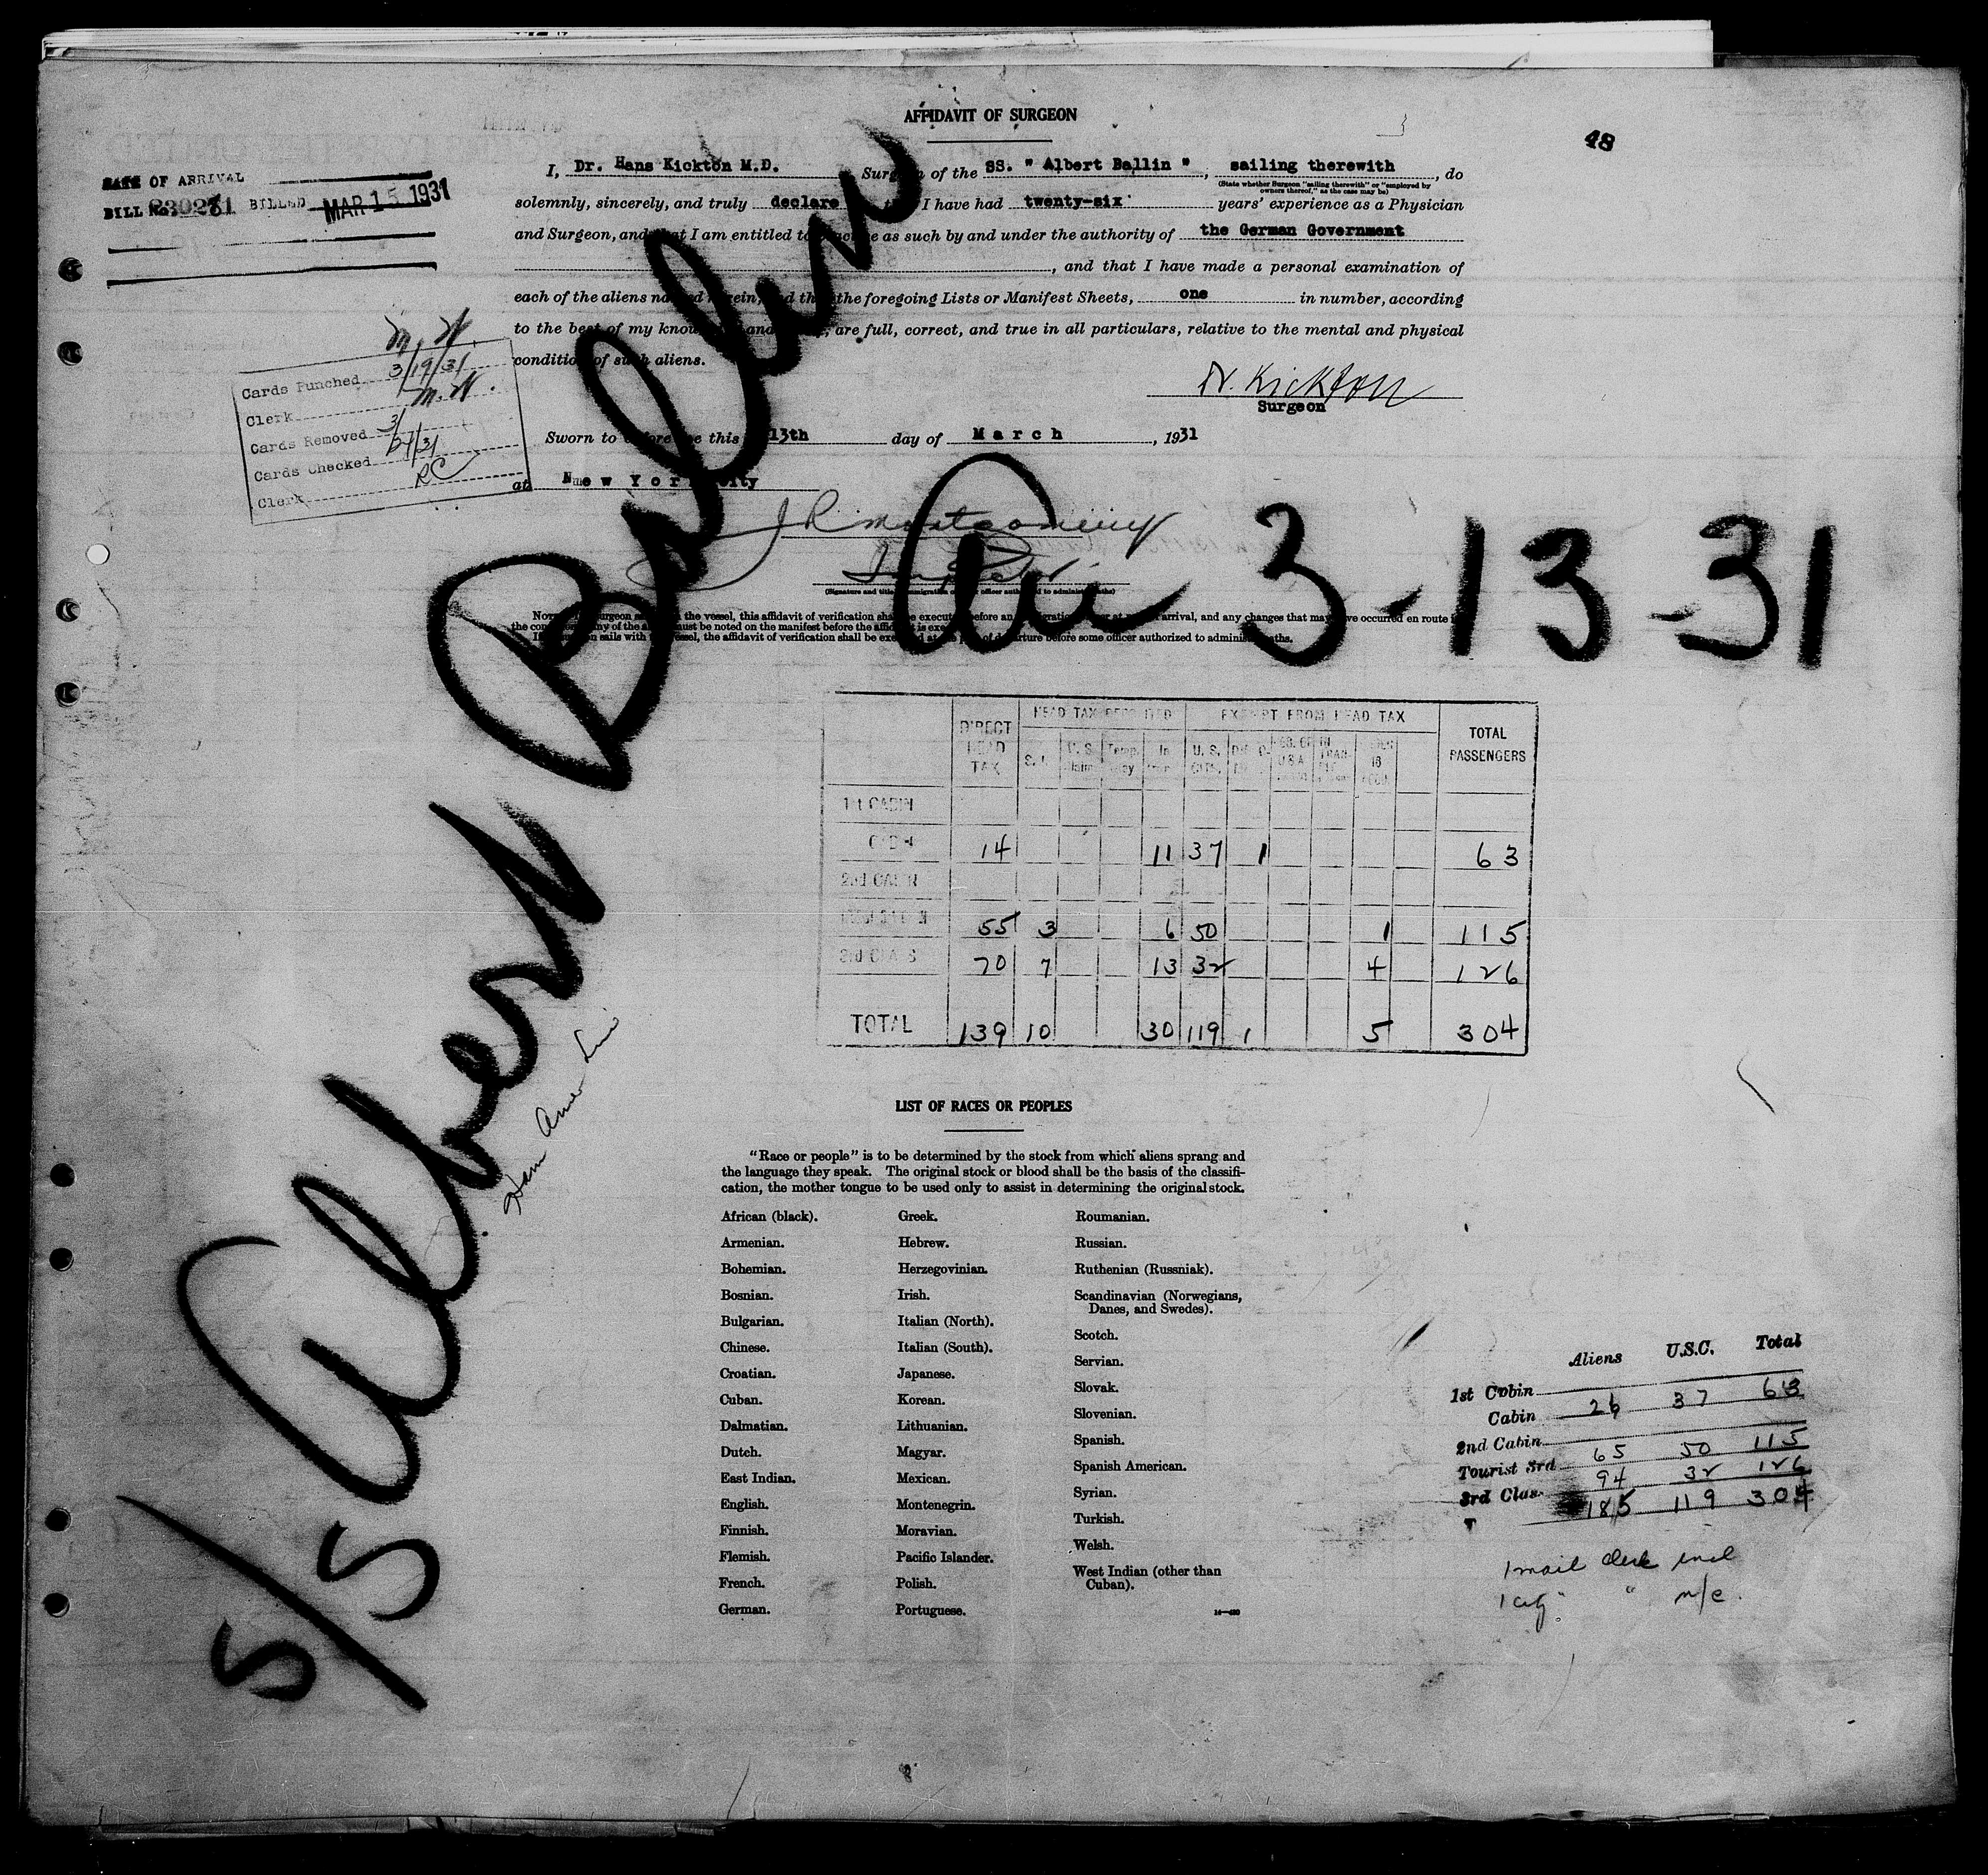 AFFIDAVIT OF SURGEON
48
DATE OF ARRIVAL
BILL No. BILLED MAR 15 1931
I, Dr. Hans Kickton M.D. Surgeon of the SS. " Albert Ballin ", sailing therewith, do
(State whether Surgeon "sailing therewith" or "employed by
owners thereof," as the case may be)
solemnly, sincerely, and truly declare that I have had twenty-six years' experience as a Physician
and Surgeon, and that I am entitled to practice as such by and under the authority of the German Government
, and that I have made a personal examination of
each of the aliens named herein, and that the foregoing Lists or Manifest Sheets, one in number, according
to the best of my knowledge and belief, are full, correct, and true in all particulars, relative to the mental and physical
condition of such aliens.
Dr. Kickton
Surgeon
Sworn to before me this 13th day of March, 1931
at New York City
J R Montgomery
Inspector
(Signature and title of immigration officer or officer authorized to administer oaths)
M. W.
Cards Punched 3/19/31
Clerk M. W.
Cards Removed
Cards Checked
Clerk RC
S/S Albert Ballin
Ham Amer Line
Arr 3-13-31
NOTE. Surgeon the vessel, this affidavit of verification shall be executed before an immigration officer at arrival, and any changes that may have occurred en route
the condition of any of the aliens must be noted on the manifest before the affidavit is executed
If surgeon sails with vessel, the affidavit of verification shall be executed at the port of departure before some officer authorized to administer oaths.
DIRECT HEAD TAX
HEAD TAX DEPOSITED
EXEMPT FROM HEAD TAX
TOTAL PASSENGERS
S.I. U.S. Claim Temp. In U.S. CITS.
1st CABIN
CABIN 14 11 37 1 63
2nd CABIN
TOURIST 3rd 55 3 6 50 1 115
3rd CLASS 70 7 13 32 4 126
TOTAL 139 10 30 119 1 5 304
LIST OF RACES OR PEOPLES
"Race or people" is to be determined by the stock from which aliens sprang and
the language they speak. The original stock or blood shall be the basis of the classifi-
cation, the mother tongue to be used only to assist in determining the original stock.
African (black).
Armenian.
Bohemian.
Bosnian.
Bulgarian.
Chinese.
Croatian.
Cuban.
Dalmatian.
Dutch.
East Indian.
English.
Finnish.
Flemish.
French.
German.
Greek.
Hebrew.
Herzegovinian.
Irish.
Italian (North).
Italian (South).
Japanese.
Korean.
Lithuanian.
Magyar.
Mexican.
Montenegrin.
Moravian.
Pacific Islander.
Polish.
Portuguese.
Roumanian.
Russian.
Ruthenian (Russniak).
Scandinavian (Norwegians,
Danes, and Swedes).
Scotch.
Servian.
Slovak.
Slovenian.
Spanish.
Spanish American.
Syrian.
Turkish.
Welsh.
West Indian (other than
Cuban).
Aliens U.S.C. Total
1st Cabin
Cabin 26 37 63
2nd Cabin
Tourist 3rd 65 50 115
3rd Clas 94 32 126
T 185 119 304
1 mail clerk incl
1 " n/c.